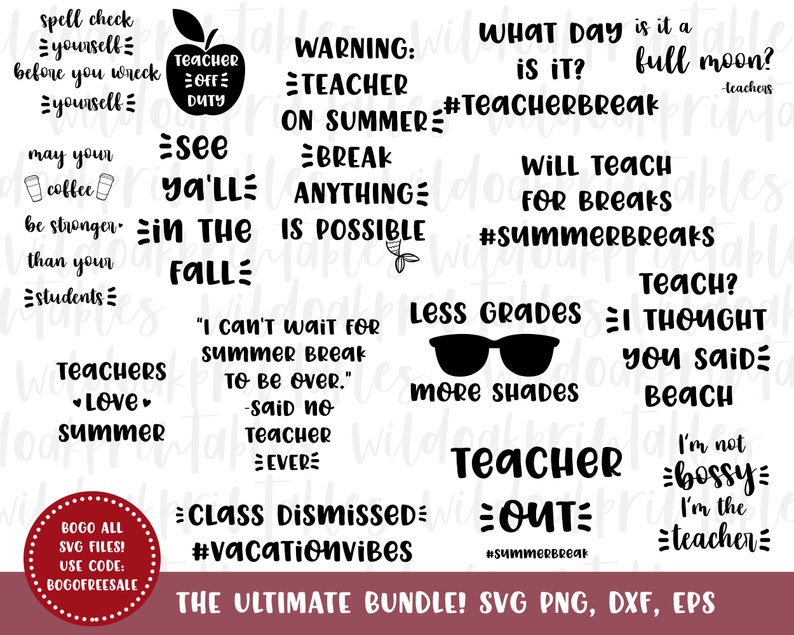 spell check
yourself
before you wreck
yourself
TEACHER
OFF
DUTY
WARNING:
TEACHER
ON SUMMER
BREAK
ANYTHING
IS POSSIBLE
WHAT DAY
IS IT?
#TEACHERBREAK
is it a
full moon?
-teachers
may your
coffee
be stronger
than your
students
see
ya'll
in the
fall
will teach
for breaks
#summerbreaks
Less Grades
more shades
Teach?
I thought
you said
beach
Teachers
love
summer
"I can't wait for
summer break
to be over."
-said no
teacher
ever
Teacher
out
#summerbreak
I'm not
bossy
I'm the
teacher
Class dismissed
#vacationvibes
BOGO ALL
SVG FILES!
USE CODE:
BOGOFREESALE
THE ULTIMATE BUNDLE! SVG PNG, DXF, EPS
wildoakprintables